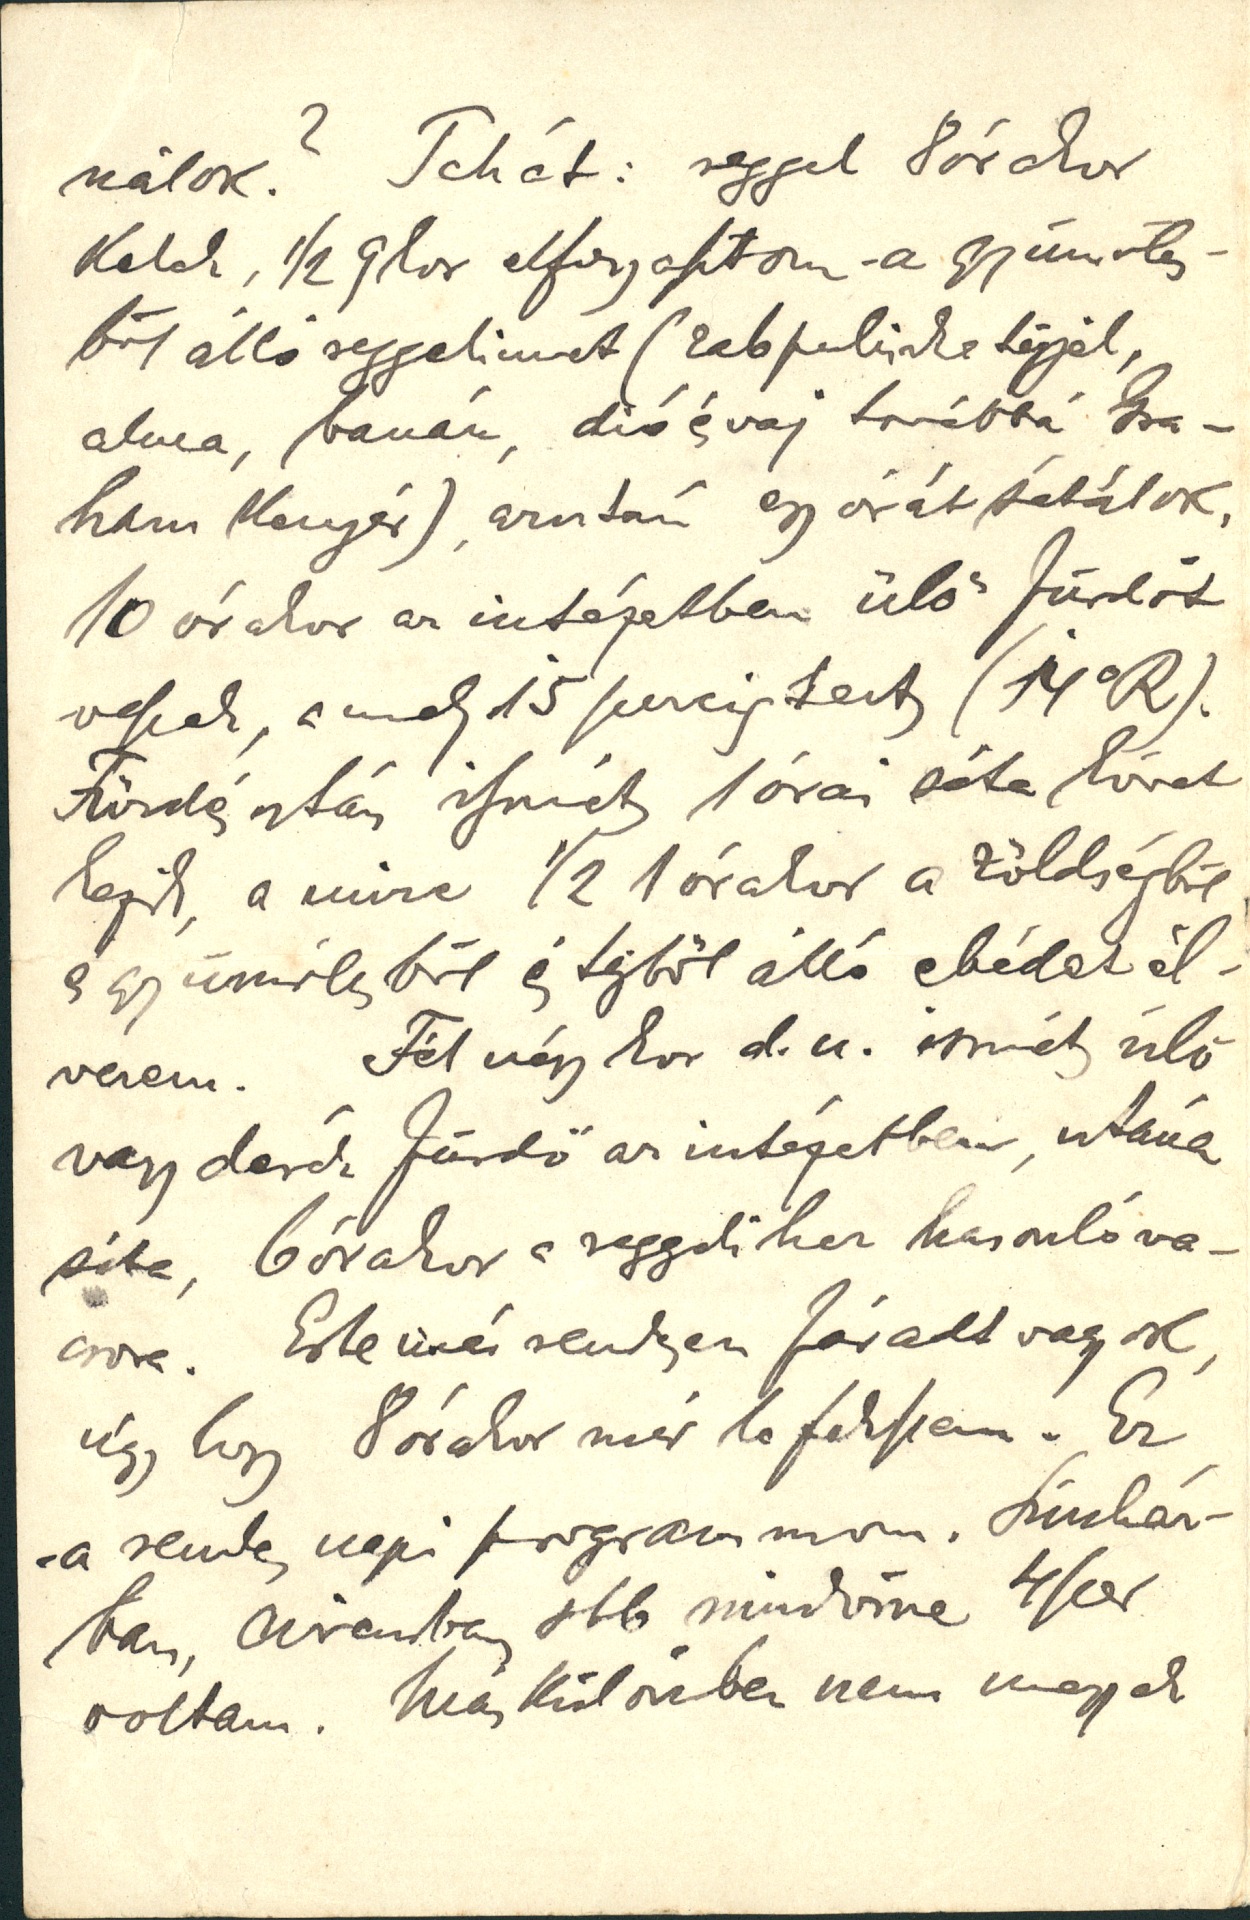 nálok.? Tehát: reggel 8 órakor
kelek, 1/2 9kor elfogyasztom a gyümölcs-
ből álló reggelimet (zabpuliszka tejjel,
alma, banán, dió és vaj továbbá Gra-
ham kenyér), azután egy órát sétálok,
10 órakor az intézetben ülő fürdőt
veszek, a mely 15 percig tart (14°R).
Fürdés után ismét 1 órai séta követ
kezik, a mire 1/2 1 órakor a zöldségből
és gyümölcsből és tejből álló ebédet él-
vezem. Fél négykor d. u. ismét ülő
vagy derék fürdő az intézetben, utána
séta, 6 órakor a reggelihez hasonló va-
csora. Este már rendesen fáradt vagyok,
úgy hogy 8 órakor már lefekszem. Ez
a rendes napi programmom. Színház-
ban, Circusban stb mindössze 4szer
voltam. Máskülönben nem megyek